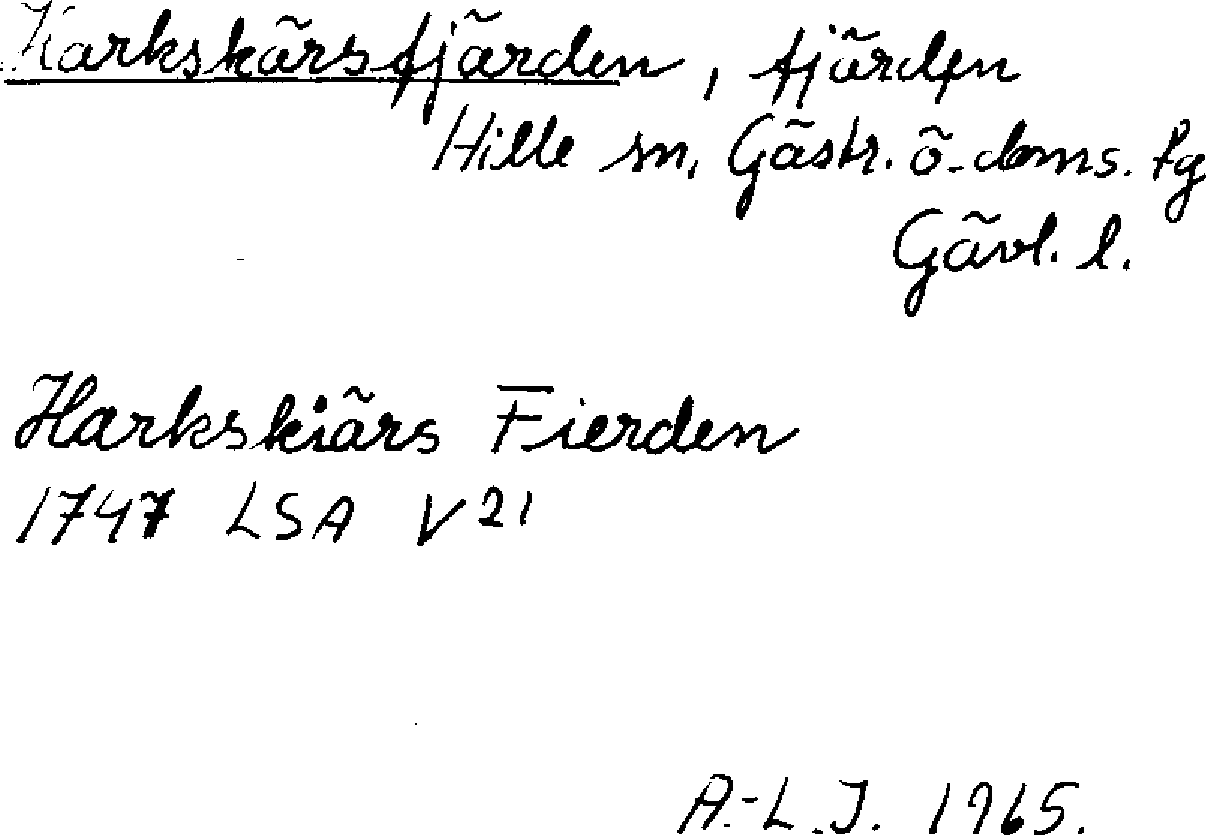 Harkskärsfjärden, fjärden
Hille sn, Gästr. ö. doms. tg
Gävl. l.
Harkskiärs Fierden
1747 LSA V21
A.-L.J. 1965.